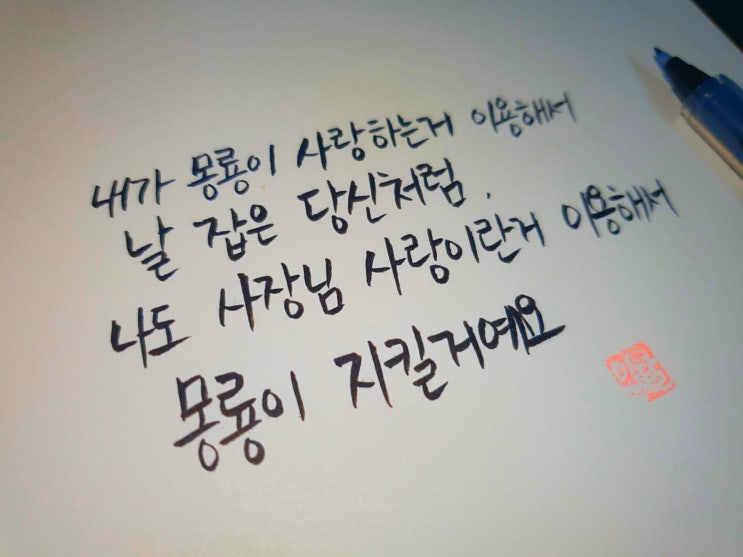 내가 몽룡이 사랑하는거 이용해서
날 잡은 당신처럼.
나도 사장님 사랑이란거 이용해서
몽룡이 지킬거예요